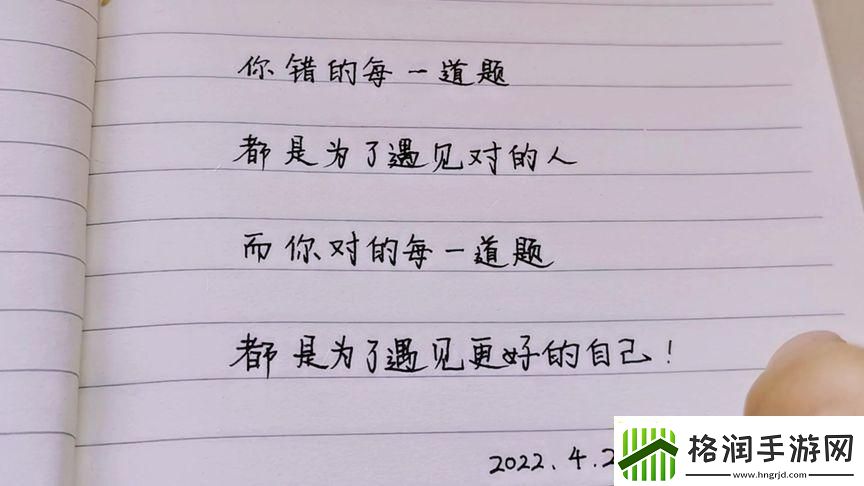 你错的每一道题
都是为了遇见对的人
而你对的每一道题
都是为了遇见更好的自己!
2022.4.2
格润手游网
www.hngrjd.com